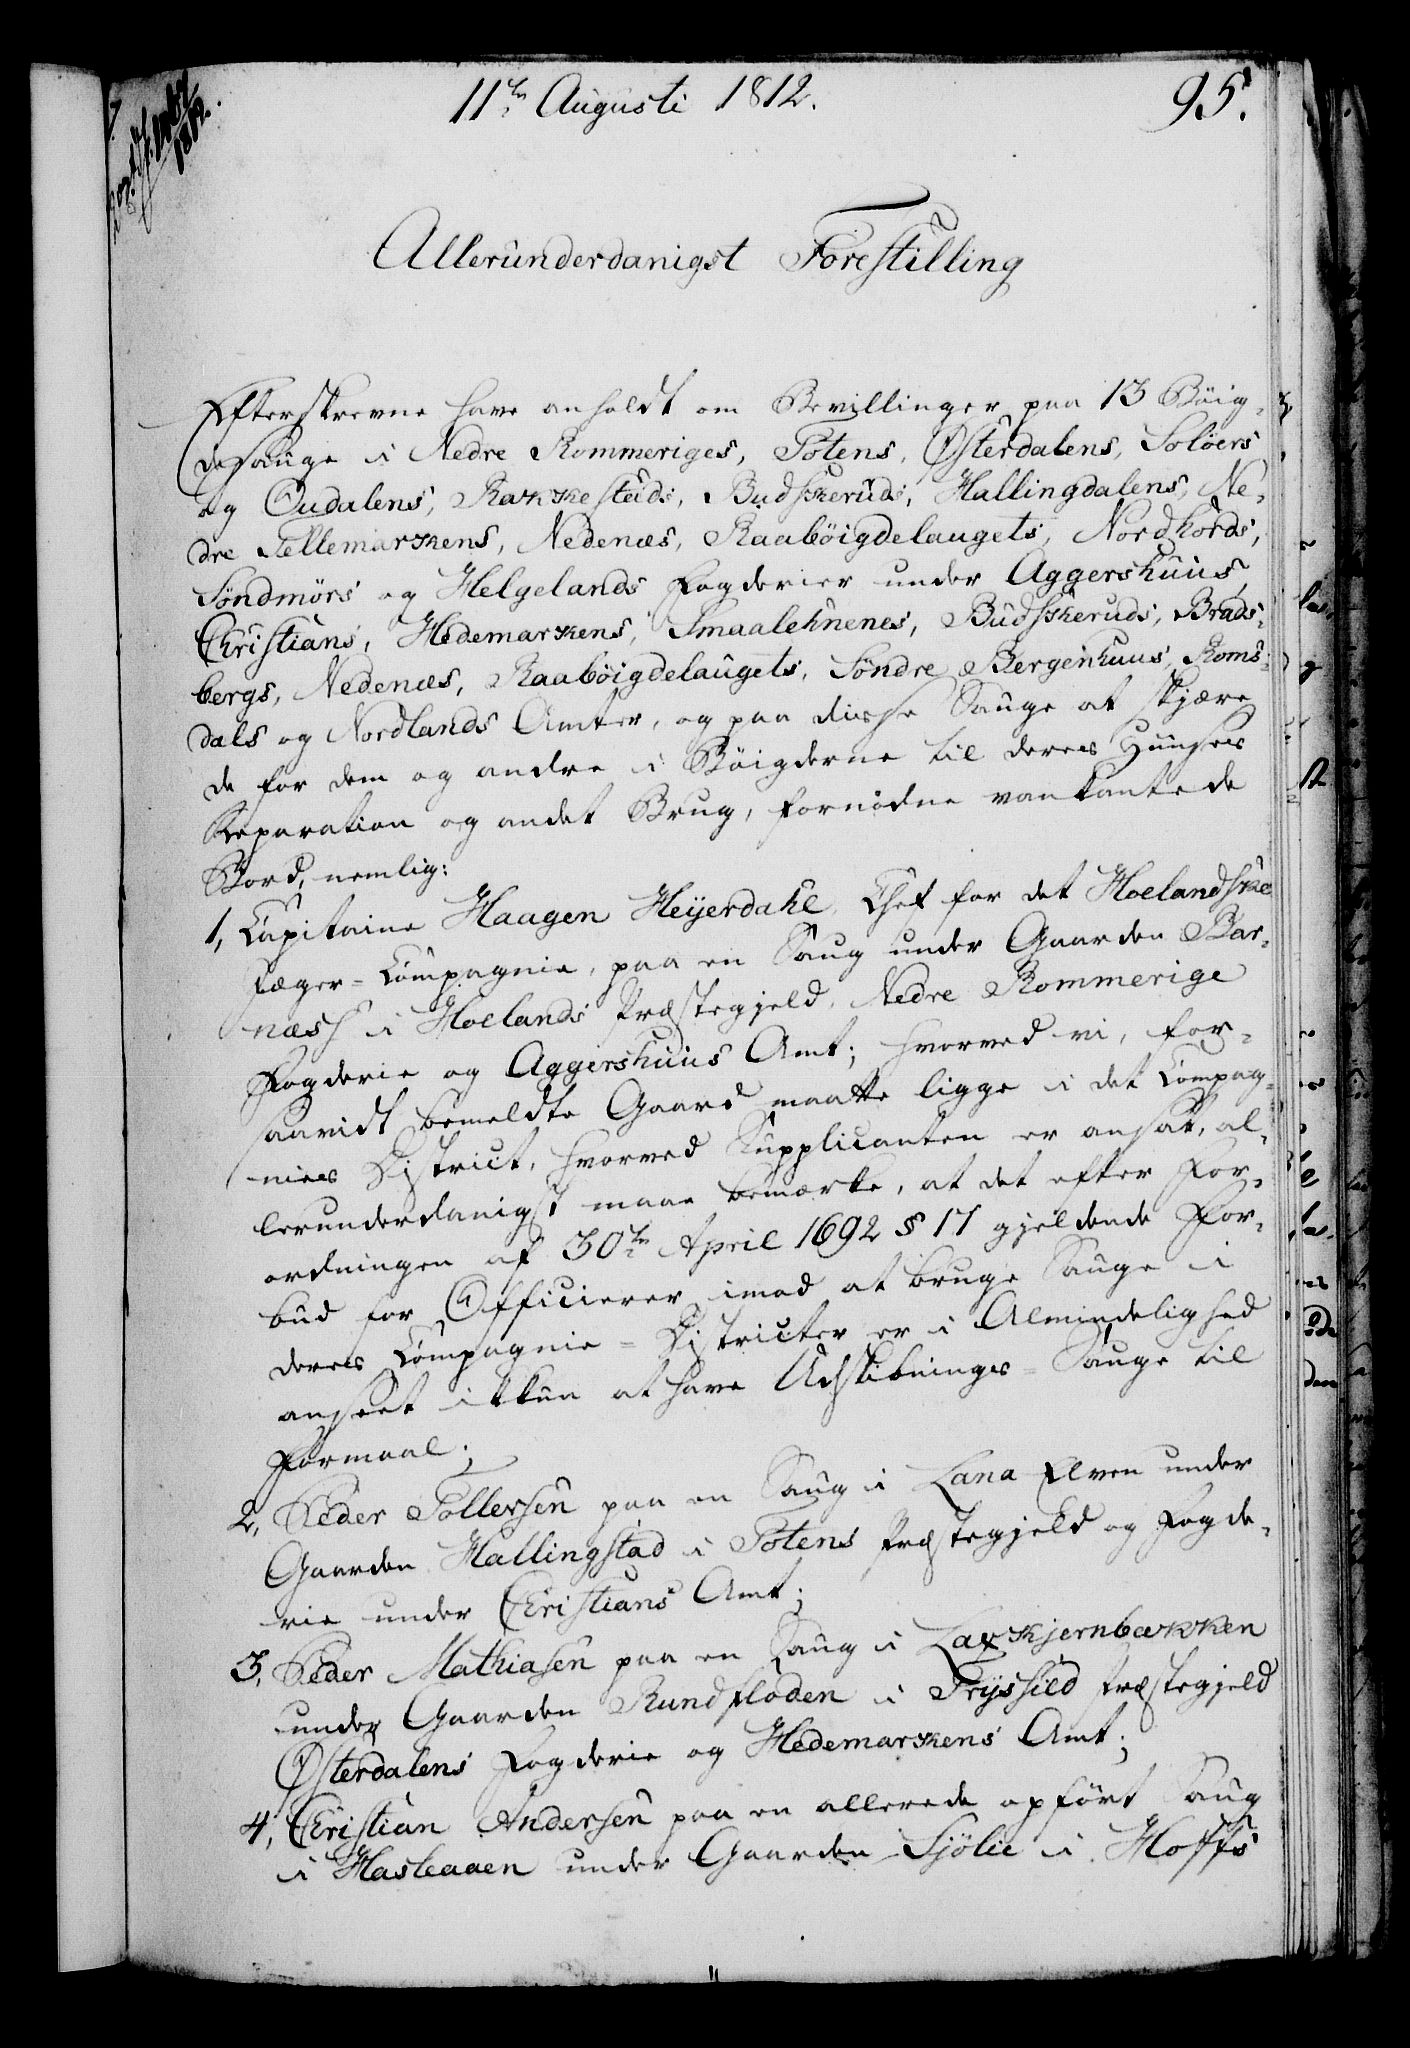 11te Augusti 1812.
95.
1812.
Allerunderdanigst Forestilling
Efterskrevne have anholdt om Bevillinger paa 13 Böig-
desauge i Nedre Rommeriges, Totens, Østerdalens, Soløers
og Oudalens, Rakkestads, Budskeruds, Hallingdalens, Ne-
dre Tellemarkens, Nedenæs, Raabøigdelaugets, Nordhords,
Søndmørs og Helgelands Fogderier under Aggershuus,
Christians, Hedemarkens, Smaalehnenes, Budskeruds, Brads-
bergs, Nedenæs, Raabøigdelaugets, Søndre Bergenhuus, Roms-
dals og Nordlands Amter, og paa disse Sauge at skjære
de for dem og andre i Böigderne til deres Huuses
Reparation og andet Brug, fornødne vankantede
Bord, nemlig:
1, Capitaine Haagen Heyerdahl, Chef for det Hoelandske
Jæger-Compagnie, paa en Saug under Gaarden Bar-
næss i Hoelands Præstegjeld, Nedre Rommerige
Fogderie og Aggershuus Amt; hvorved vi, for-
saavidt bemeldte Gaard maatte ligge i det Compag-
nies District, hvorved Supplicanten er ansat, al-
lerunderdanigst maae bemærke, at det efter For-
ordningen af 30te April 1692 § 17 gjeldende For-
bud for Officierer imod at bruge Sauge i
deres Compagnie-Districter er i Almindelighed
anseet ikkun at have Udskibnings-Sauge til
Formaal;
2, Peder Tollersen paa en Saug i Lana Elven under
Gaarden Hallingstad i Totens Præstegjeld og Fogde-
rie under Christians Amt;
3, Peder Mathiasen paa en Saug i Laxkjernbækken
under Gaarden Rundfloden i Trysild Præstegjeld
Østerdalens Fogderie og Hedemarkens Amt;
4, Christian Andersen paa en allerede opført Saug
i Hasleaaen under Gaarden Sjølie i Hoffs